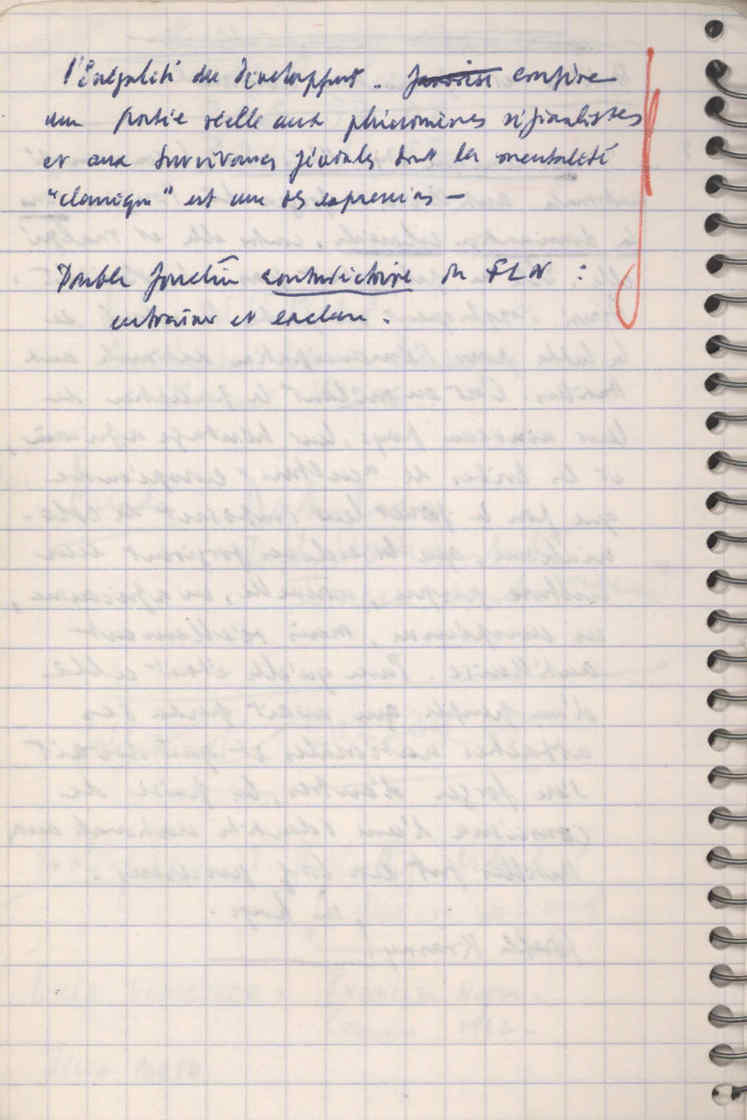 l'inégalité du développt. favorise confère
une portée réelle aux phénomènes régionalistes
et aux survivances féodales dont la mentalité
"clanique" est une des expressions —
Double fonction contradictoire du FLN :
entraîner et enclore.